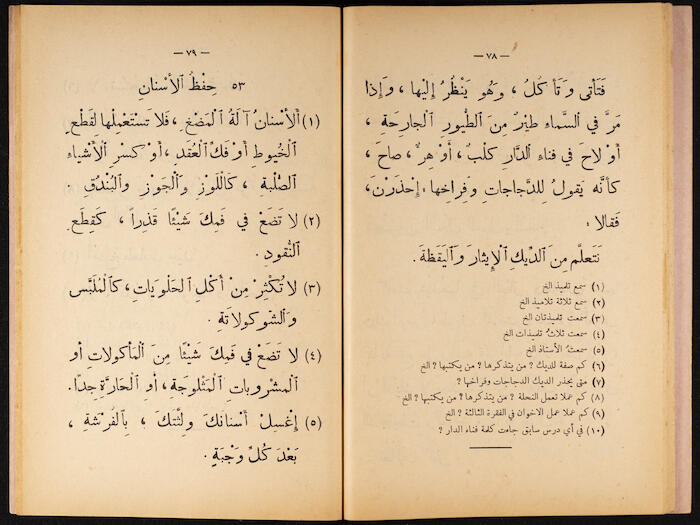 — ٧٨ —
فَتَأْتِي وَتَأْكُلُ ، وَهُوَ يَنْظُرُ إِلَيْها ، وَإِذا
مَرَّ فِي ٱلسَّماءِ طَيْرٌ مِنَ ٱلطُّيورِ ٱلْجارِحَةِ ،
أَوْ لاحَ فِي فِناءِ ٱلدَّارِ كَلْبٌ ، أَوْ هِرٌّ ، صَاحَ ،
كَأَنَّه يَقولُ لِلدَّجاجاتِ وَفِراخِها : إِحْذَرْنَ ،
فَقالا :
نَتَعلَّم مِنَ ٱلدِّيكِ ٱلْإِيثارَ وَٱلْيَقَظَةَ .
(١) سمع تلميذ الخ
(٢) سمع ثلاثة تلاميذ الخ
(٣) سمعت تلميذتان الخ
(٤) سمعت ثلاثُ تلميذات الخ
(٥) سمعتُ الأستاذ الخ
(٦) كم صفة للديك ? من يتذكرها ? من يكتبها ? الخ
(٧) متى يحذر الديك الدجاجات وفراخها ?
(٨) كم عملا تعمل النحلة ? من يتذكرها ? من يكتبها ? الخ
(٩) كم عملا عمل الاخوان في الفقرة الثالثة ? الخ
(١٠) في أي درس سابق جاءت كلمة فناء الدار ?
— ٧٩ —
٥٣ حِفْظُ ٱلْأَسْنانِ
(١) أَلْأَسْنانُ آلَةُ ٱلْمَضْغِ ، فَلا تَسْتَعْمِلْها لِقَطْعِ
ٱلْخُيوطِ أَوْ فَكِّ ٱلْعُقَدِ ، أَوْ كَسْرِ ٱلْأَشْياءِ
ٱلصُّلْبَةِ ، كَاللَّوْزِ وَٱلْجَوْزِ وَٱلْبُنْدُقِ .
(٢) لا تَضَعْ فِي فَمِكَ شَيْئًا قَذِراً ، كَقِطَعِ
ٱلنُّقودِ .
(٣) لا تُكْثِرْ مِنْ أَكْلِ ٱلْحَلْوَياتِ ، كَٱلْمُلَبَّسِ
وَٱلشوكولاتةِ .
(٤) لا تَضَعْ فِي فَمِكَ شَيْئًا مِنَ ٱلْمَأْكولاتِ أَوِ
ٱلْمَشْروباتِ ٱلْمَثْلوجَةِ ، أَوِ ٱلْحَارَّةِ جِدًّا .
(٥) إِغْسِلْ أَسْنانَكَ وَلِثَتَكَ ، بِٱلْفُرْشَةِ ،
بَعْدَ كُلِّ وَجْبَةٍ .